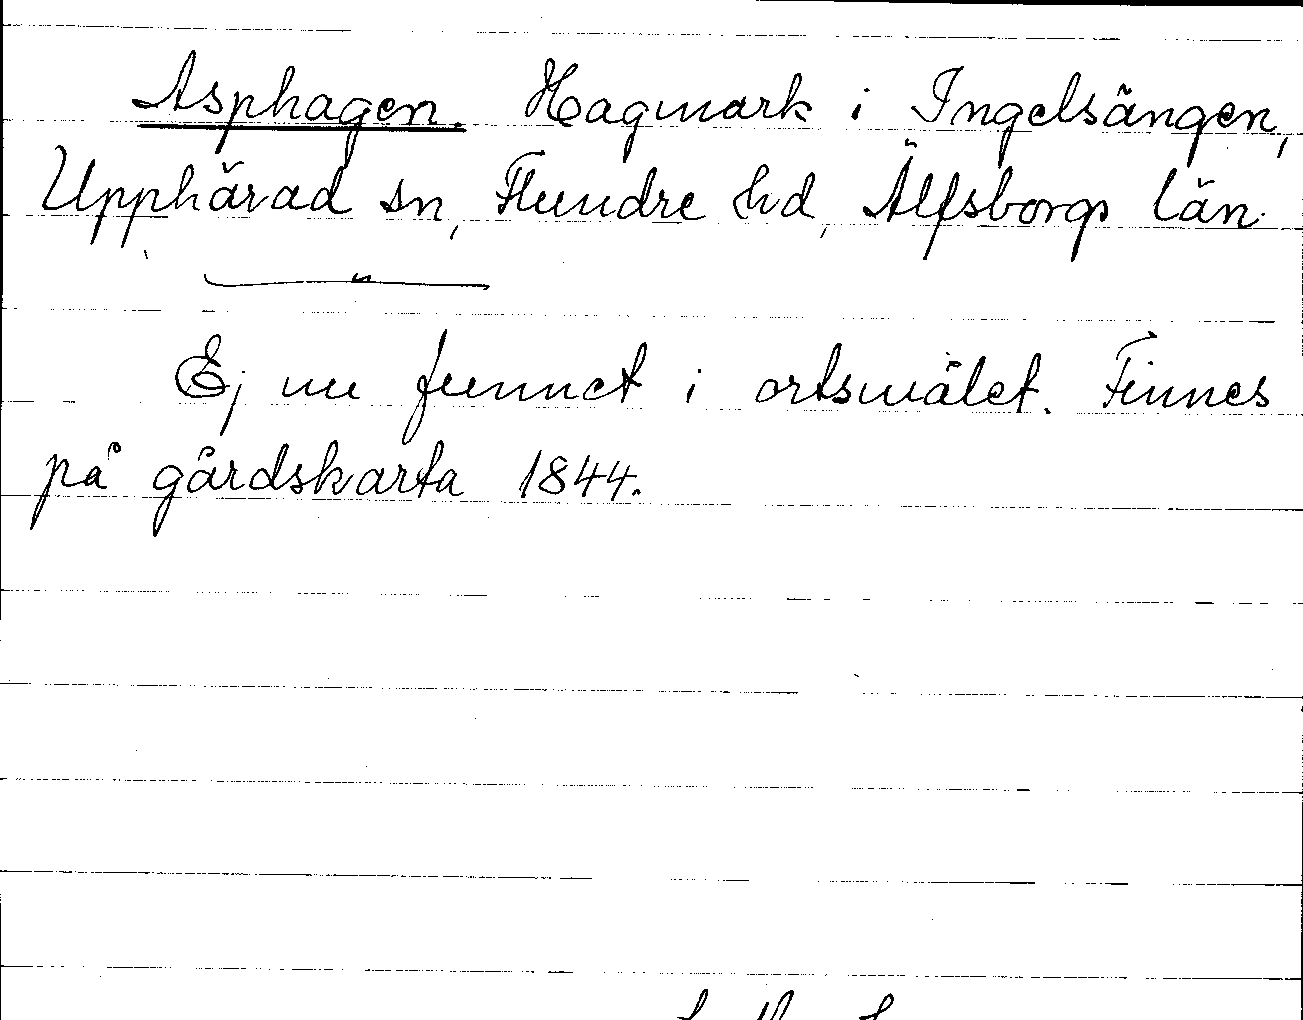 Asphagen. Hagmark i Ingelsängen,
Upphärad sn, Flundre hd, Älfsborgs län.
"
Ej nu funnet i ortsmålet. Finnes
på gårdskarta 1844.